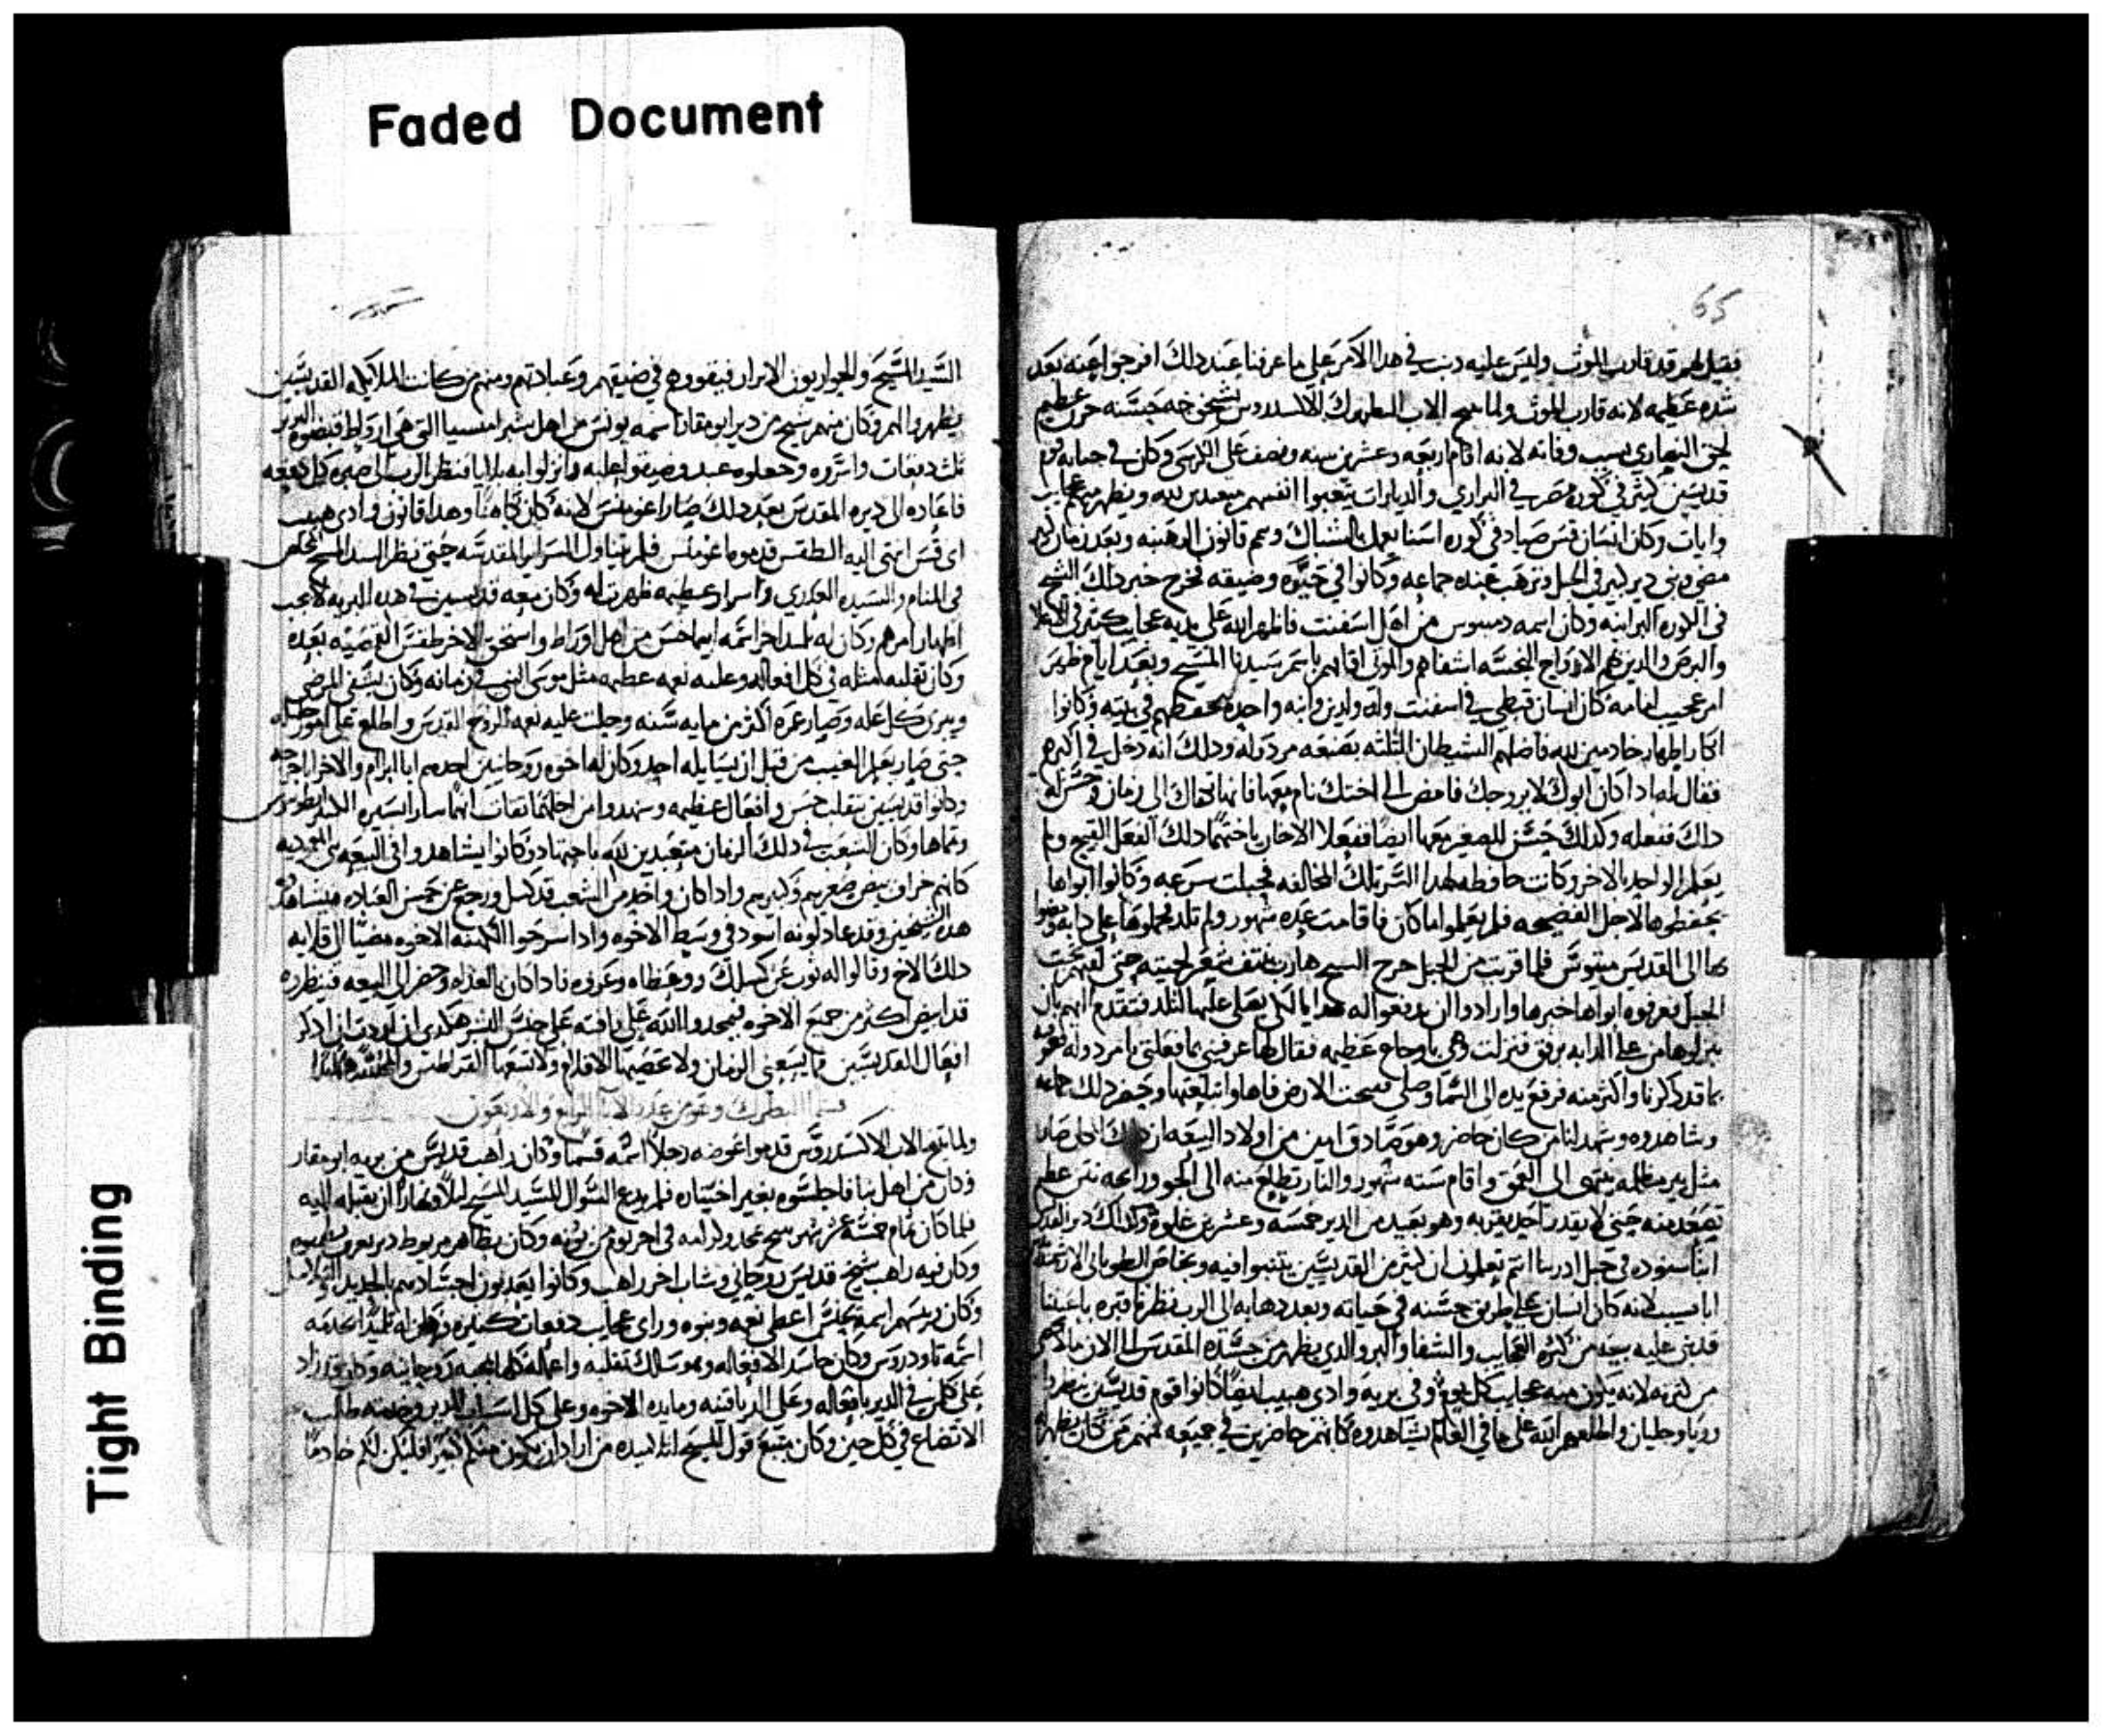 Faded Document
Tight Binding
65
فقيل لهم قد قارب الموت وليس عليه دنب في هدا الامر على ما عرفنا عند دلك افرجوا عنه بعد
شده عظيمه لانه قارب الموت ولما تنيح الاب البطريرك الاكسندروس حزن عظيم
لحق النصارى بسبب وفاته لانه اقام اربعه وعشرين سنه ونصف على الكرسي وكان في ايامه قوم
قديسين كثير في كوره مصر في البراري والديارات يتعبوا انفسهم متعبدين لله ويظهر منهم عجايب
وايات وكان انسان قس صياد في كوره اسنا يعمل بالشباك وتمم قانون الرهبنه وبعد زمان
مضى وبنى دير كبير في الجبل وترهب عنده جماعه وكانوا في وضيقه فخرج خبر دلك الشيخ
في الكوره البرانيه وكان اسمه من اهل اسفنت فاظهر الله على يديه عجايب كتير في الاعلا
والبرص والدين بهم الارواح النجسه اشفاهم والموتى اقامهم باسم سيدنا المسيح وبعد ايام ظهر
امر عجيب امامه كان انسان قبطي في اسفنت وله ولدين وابنه واحده يحفظهم في بيته وكانوا
اطهار خادمين لله فاضلهم الشيطان الثلثه بصنعه مردوله ودلك انه دخل في اكبرهم
فقال له ادا كان ابوك لا يزوجك فامض الى اختك نام معها فانها تكفاك الى زمان وحسن له
داك ففعله وكدلك حسن للصغير معها ايضا ففعلا الاخان باختهما دلك الفعل القبيح ولم
يعلم الواحد بالاخر وكانت حافظه لهدا السر تلك المخالفه فحبلت بسرعه وكانوا ابواها
يحفظوها لاجل الفضيحه فلم يعلموا ما كان فاقامت عده شهور ولم تلد فحملوها على دابه ومضوا
بها الى القديس فلما قربت من الجبل خرج الشيخ هارب ينتف شعر لحيته حتى لقيهم تحت
الجبل فعرفوه ابواها خبرها وارادوا ان يدفعوا له هدايا لكي يصلى عليها لتلد فتقدم اليهم بان
ينزلوها من على الدابه برفق فنزلت وهي باوجاع عظيمه فقال لها عرفيني بما فعلتي يا مردوله
بما قد دكرنا واكثر منه فرفع يده الى السما وصلى ففتحت الارض فاها وابتلعتها وحضر دلك جماعه
وشاهدوه وشهد لنا من كان حاضر وهو صادق امين من اولاد البيعه ان
مثل بير مظلمه ينتهى الى العمق واقام سته شهور والنار تطلع منه الى الجو ورايحه نتن عظيم
تصعد منه حتى لا يقدر احد يقربه وهو بعيد من الدير خمسه وعشرين غلوه وكدلك دير القديس
ابا شنوده في جبل ادريبا انتم تعلمون ان كثير من القديسين تنبوا فيه وبخاصه الطوباني
لانه كان انسان على طريق حسنه في حياته وبعد دهابه الى الرب نظرنا قبره باعيننا
قد بني عليه بيعه من كثره العجايب والشفا والبر والدي يظهر من جسده المقدس الى الان
لانه يكون منه عجايب كل يوم وفي بريه وادي هبيب ايضا كانوا قوم قديسين نظروا
رويا وجليان واطلعهم الله على ما في العالم يشاهدوه كانهم حاضرين في جميعه فمنهم من كان يظهر له
السيد المسيح والحواريون الابرار فيقووه في ضيقهم وعبادتهم ومنهم من كانت الملايكه القديسين
يظهروا لهم وكان منهم شيخ من دير ابو مقار اسمه يونس من اهل شبرا
ثلث دفعات واسروه وجعلوه عبد وضيقوا عليه وانزلوا به بلايا فنظر الرب الى صبره كل دفعه
فاعاده الى ديره المقدس بعد دلك صار اغومنس لانه كان كاهنا وهدا قانون وادي هبيب
اي قس انتهى اليه الطقس قدموه اغومنس فلم يتناول السراير المقدسه حتى نظر السيد المسيح
في المنام والسيده العدرى واسرار عظيمه ظهرت له وكان معه قديسين في هده البريه لا يجب
اظهار امرهم وكان له تلميد اخر اسمه ابيماخس من اهل اوراط واستحق الاخر طقس القمصيه بعده
وكان تقلبه مثله في كل افعاله وعليه نعمه عظيمه مثل موسى النبي في زمانه وكان يشفى المرضى
ويبرى كل عله وصار عمره اكثر من مايه سنه وحلت عليه نعمه الروح القدس واطلع على امور
حتى صار يعلم الغيب من قبل ان يسايله احد وكان له اخوه روحانيين احدهم ابا ابرام والاخر ابا جرجه
وكانوا قديسين بتقلب حسن وافعال عظيمه
وكان الشعب في دلك الزمان متعبدين لله باجتهاد وكانوا يشاهدوا في البيعه بني المعموديه
كانهم خراف بيض صغيرهم وكبيرهم وادا كان واحد من الشعب قد كسل ورجع عن حسن العباده
هدين الشيخين وقد عاد لونه اسود في وسط الاخوه وادا سرحوا الكهنه الاخوه مضيا الى قلايه
دلك الاخ وقالوا له توب عن كسلك ووعظاه وعزوه فادا كان بالغداه وحضر الى البيعه فينظره
قد ابيض اكثر من جميع الاخوه فيمجدوا الله على
افعال القديسين ما يسعني الزمان ولا تحصيها الاقلام ولا تسعها القراطيس
قسما البطريرك وهو من عدد الابا الرابع والاربعون
ولما تنيح الاب الاكسندروس قدموا عوضه رجلا اسمه قسما وكان راهب قديس من بريه ابو مقار
وكان من اهل بنا فاجلسوه بغير اختياره فلم يدع السوال للسيد المسيح ليلا ونهارا ان يقبله اليه
فلما كان تمام خمسه عشر شهر تنيح بمجد وكرامه في اخر يوم من بوونه وكان بظاهر مريوط دير يعرف
وكان فيه راهب شيخ قديس روحاني وشاب اخر راهب وكانوا يعدبون اجسادهم بالحديد
وكان ريسهم اسمه يحنس اعطي نعمه ونبوه وراى عجايب دفعات كثيره وكان له تلميدا يخدمه
اسمه تاودروس وكان حاسدا لافعاله وهو سالك تقلبه واعماله كلها بمحبه روحانيه وكان قد زاد
على كل من في الدير بافعاله وعلى الدياقنه ومايده الاخوه وعلى كل اسباب الدير وخدمته طالب
الاتضاع في كل حين وكان يتبع قول المسيح لتلاميده من اراد ان يكون منكم كبيرا فليكن لكم خادما